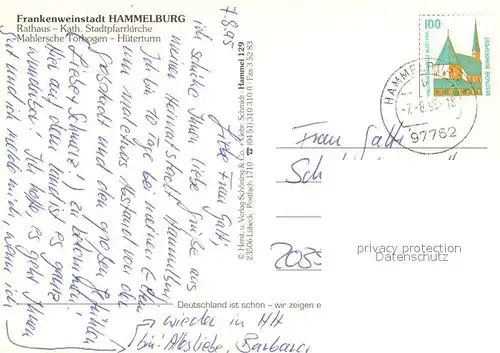 Frankenweinstadt HAMMELBURG
Rathaus – Kath. Stadtpfarrkirche
Mahlersche Torbogen – Hüterturm
7.8.95
Liebe Frau Gatti
ich schicke Ihnen liebe Grüße aus
meiner Heimatstadt Hammelburg.
Ich bin 10 Tage bei meinen Eltern
um mal etwas Abstand von der
Großstadt und den großen Gefühlen
(Liebesschmerz!) zu bekommen!
Hier auf dem Land ist es ganz
wunderbar! Ich hoffe es geht Ihnen
gut und ich melde mich, wenn ich
wieder in HH
bin! Alles Liebe, Barbara
© Herst. u. Verlag Schöning & Co. + Gebr. Schmidt · Hammel 129
23506 Lübeck, Postfach 1710 ☎ (0451) 310310 · Fax 35283
Deutschland ist schön – wir zeigen e
100
DEUTSCHE BUNDESPOST
HAMMELBURG
97762
Frau Gatti
Sch
privacy protection
Datenschutz